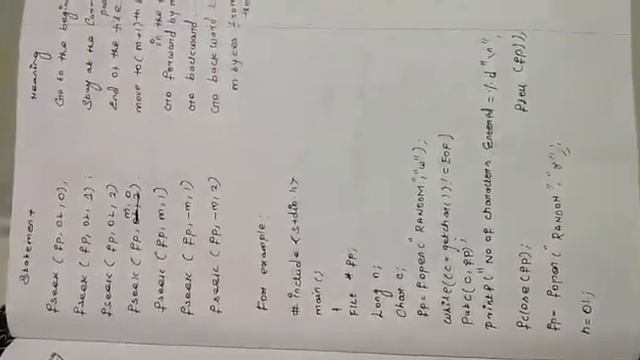 Statement Meaning
fseek (fp, 0L, 0); Go to the begin
fseek (fp, 0L, 1); Stay at the Curr
fseek (fp, 0L, 2) End of the file
fseek (fp, m, 0) move to (m+1)th
fseek (fp, m, 1) Go forward by m
fseek (fp, -m, 1) Go backward
fseek (fp, -m, 2) Go backward
m bytes from
For example:
# include <stdio.h>
main()
{
FILE *fp;
Long n;
Char c;
fp = fopen("RANDOM","w");
while((c=getchar())!=EOF)
putc(c,fp);
printf("No of characters Entered=%d"\n",
ftell (fp));
fclose(fp);
fp= fopen("RANDON","r");
n=0L;